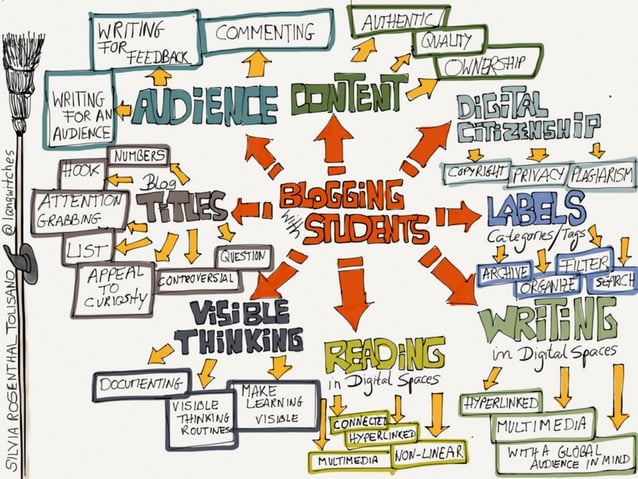 WRITING
FOR
FEEDBACK
COMMENTING
WRITING
FOR AN
AUDIENCE
AUDIENCE
CONTENT
AUTHENTIC
QUALITY
OWNERSHIP
DiGiTAL
CiTiZENSHiP
COPYRIGHT
PRIVACY
PLAGIARISM
NUMBERS
HOOK
Blog
TiTLES
ATTENTION
GRABBING
LIST
APPEAL
TO
CURIOSITY
CONTROVERSIAL
QUESTION
BLOGGiNG
with
STUDENTS
LABELS
Categories/Tags
ARCHIVE
ORGANIZE
FILTER
SEARCH
ViSiBLE
THiNKiNG
DOCUMENTING
VISIBLE
THINKING
ROUTINES
MAKE
LEARNING
VISIBLE
READiNG
in Digital Spaces
CONNECTED
HYPERLINKED
MULTIMEDIA
NON-LINEAR
WRiTiNG
in Digital Spaces
HYPERLINKED
MULTIMEDIA
WITH A GLOBAL
AUDIENCE IN MIND
SILVIA ROSENTHAL TOLISANO
@langwitches